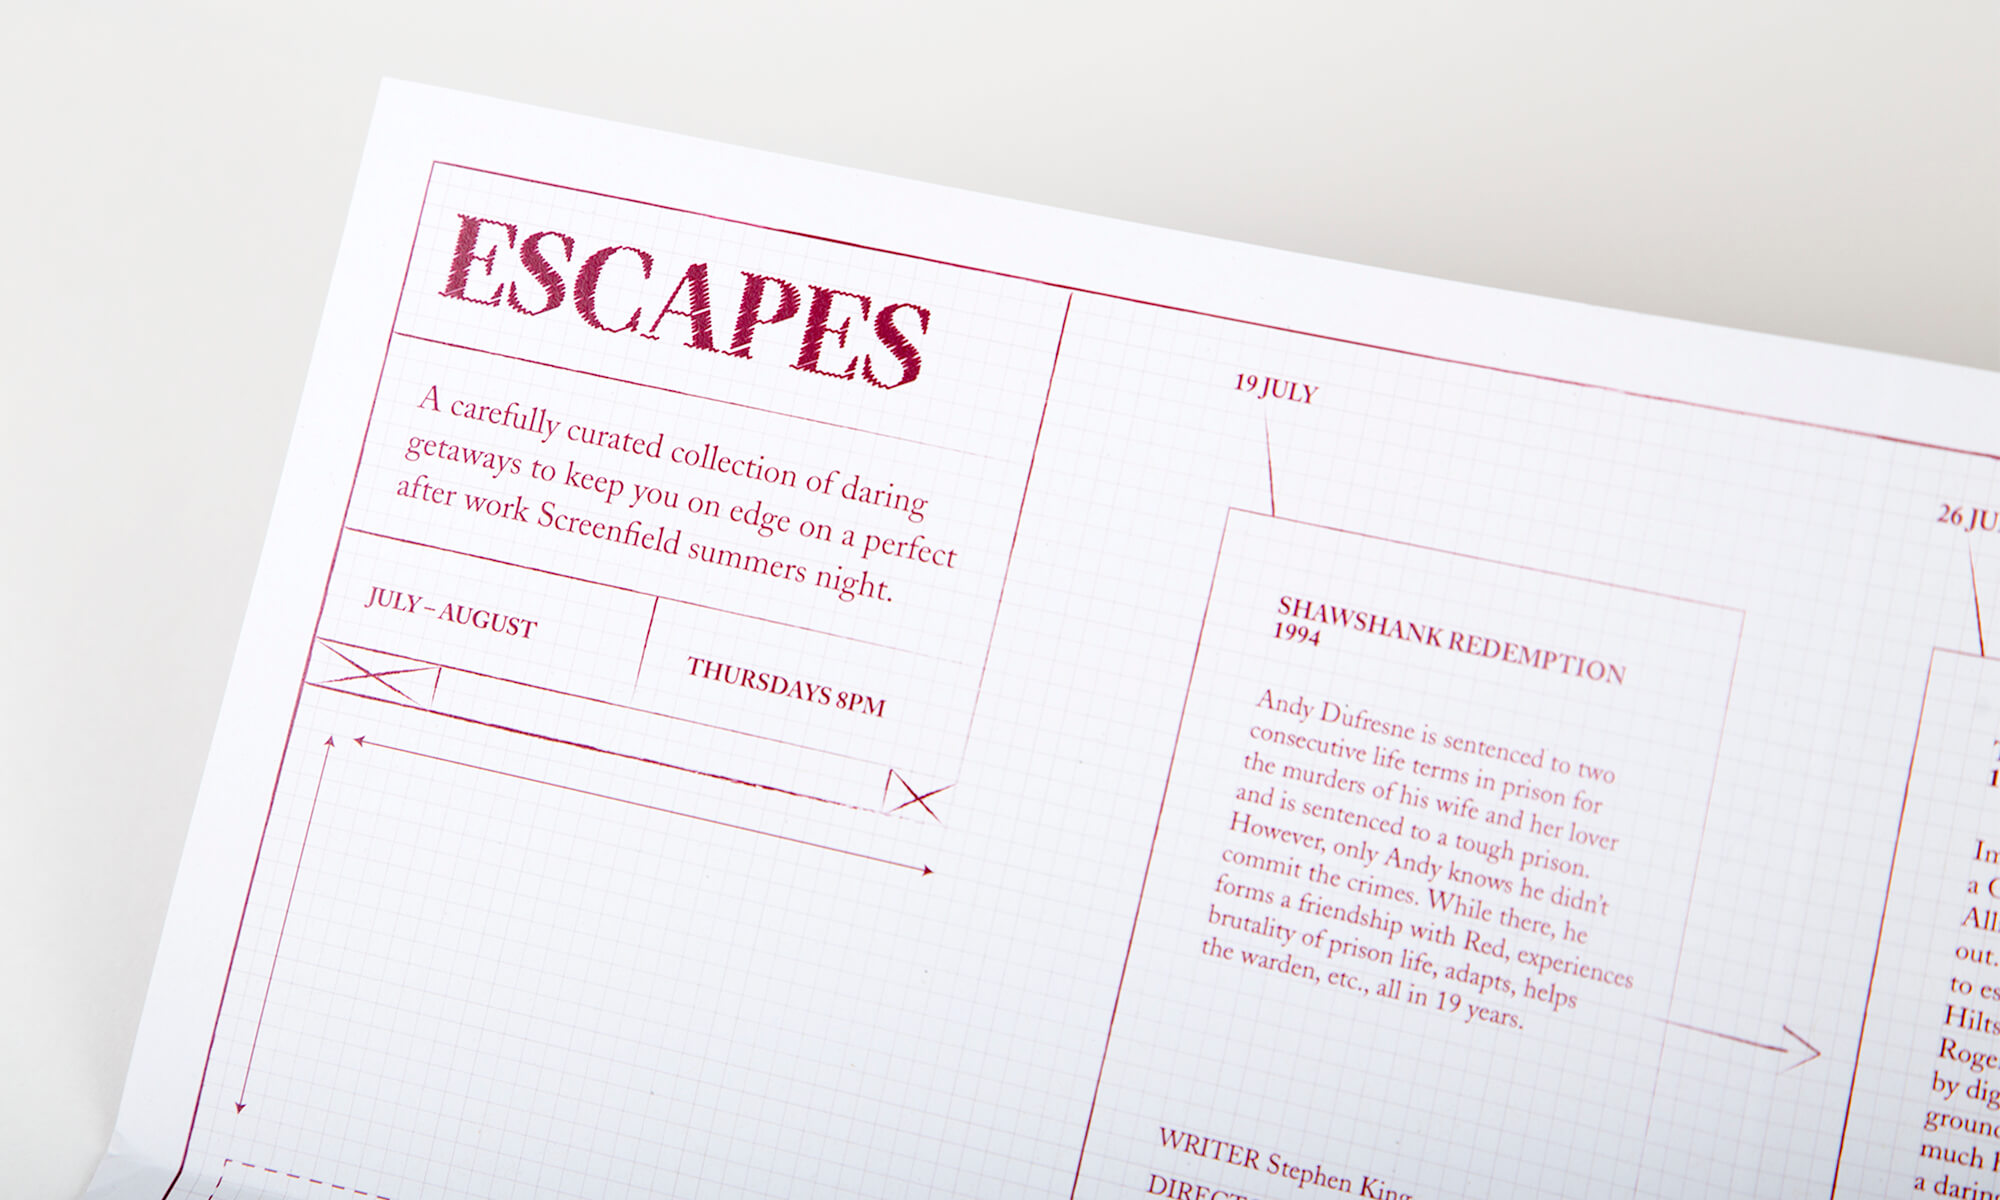 ESCAPES
A carefully curated collection of daring
getaways to keep you on edge on a perfect
after work Screenfield summers night.
JULY – AUGUST
THURSDAYS 8PM
19 JULY
SHAWSHANK REDEMPTION
1994
Andy Dufresne is sentenced to two
consecutive life terms in prison for
the murders of his wife and her lover
and is sentenced to a tough prison.
However, only Andy knows he didn't
commit the crimes. While there, he
forms a friendship with Red, experiences
brutality of prison life, adapts, helps
the warden, etc., all in 19 years.
WRITER Stephen King
26
a
out.
to
Hilts
by dig
much
a